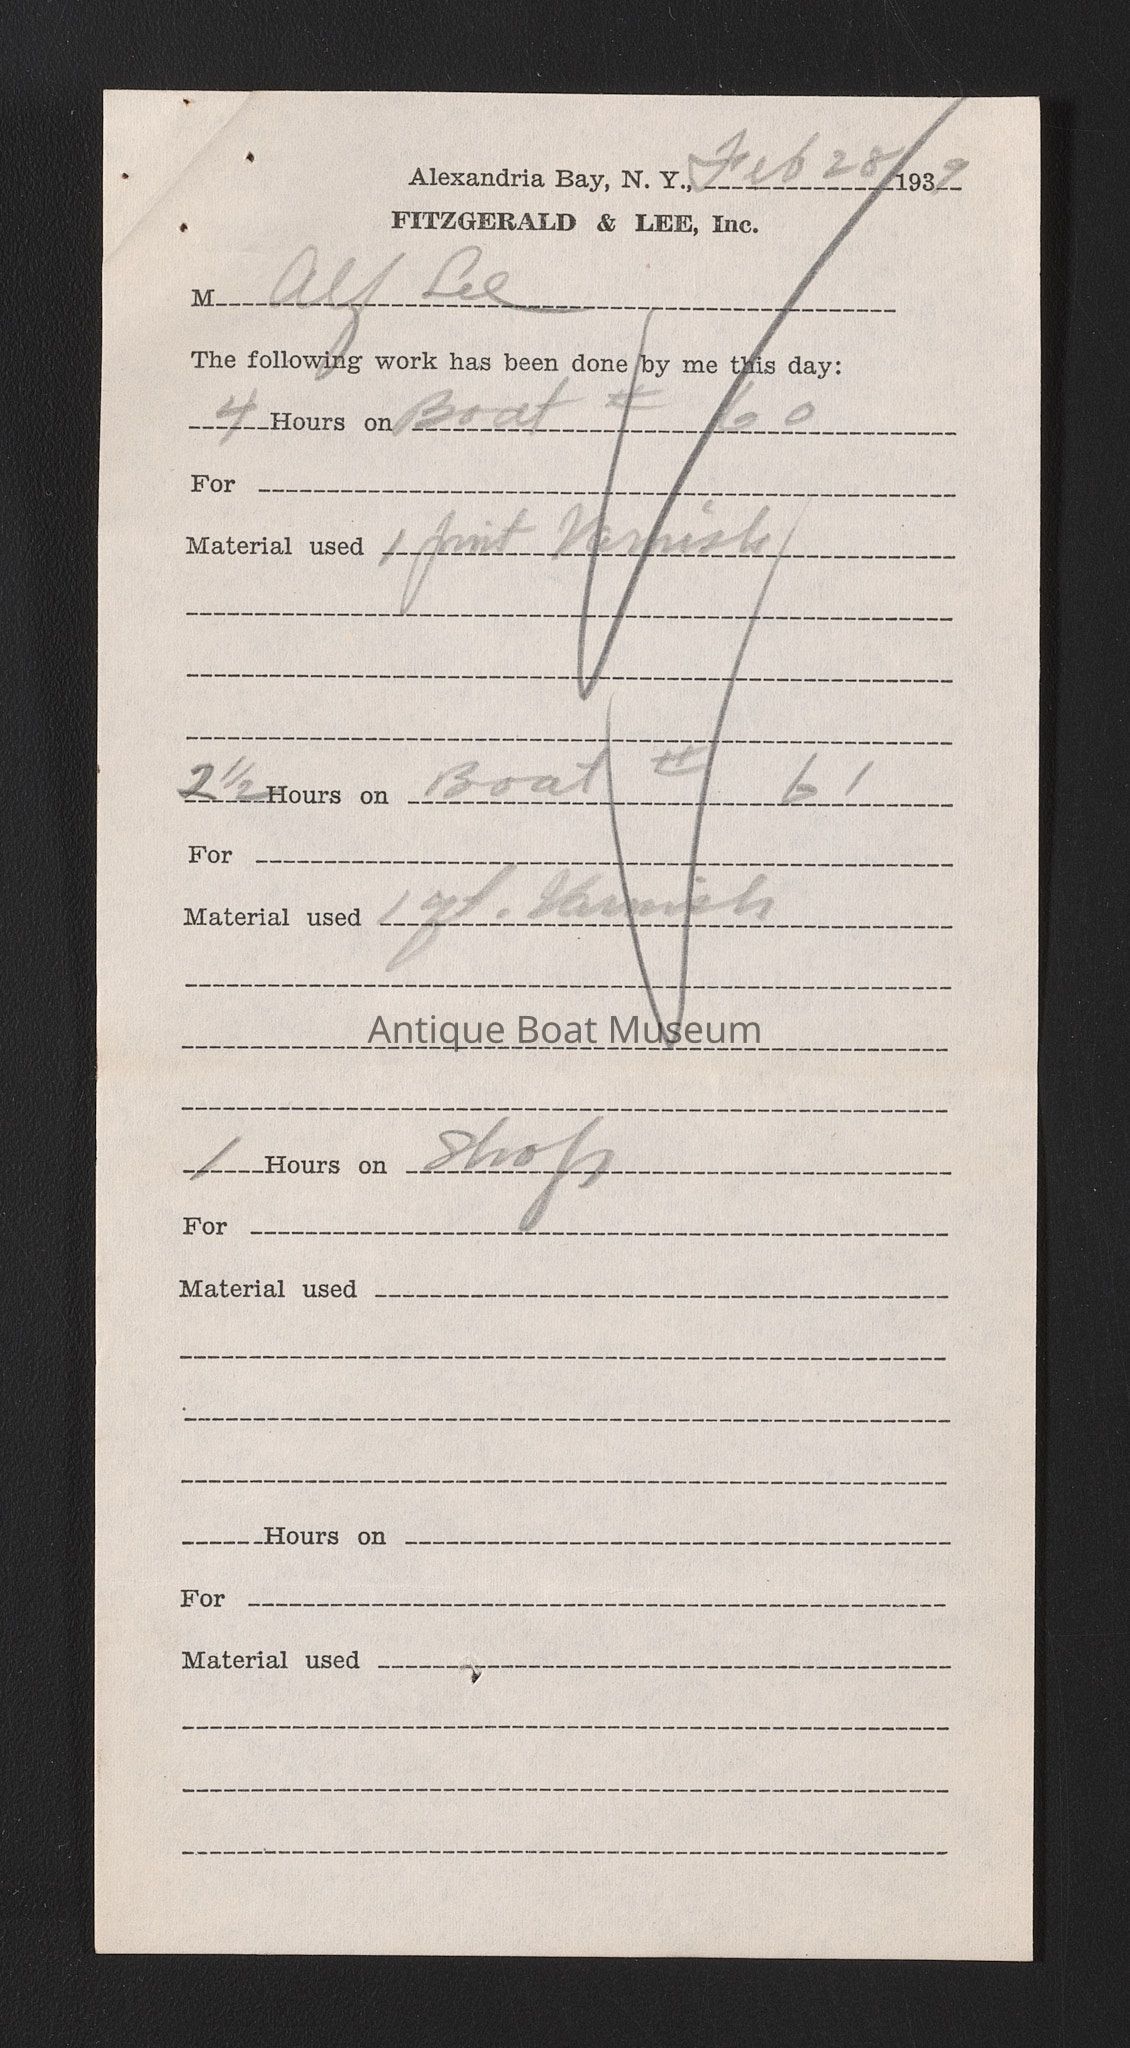 Alexandria Bay, N. Y., Feb 28 1939
FITZGERALD & LEE, Inc.
M Alf Lee
The following work has been done by me this day:
4 Hours on Boat # 60
For
Material used 1 pint Varnish
2 1/2 Hours on Boat # 61
For
Material used 1 qt. Varnish
Antique Boat Museum
1 Hours on Shop
For
Material used
Hours on
For
Material used